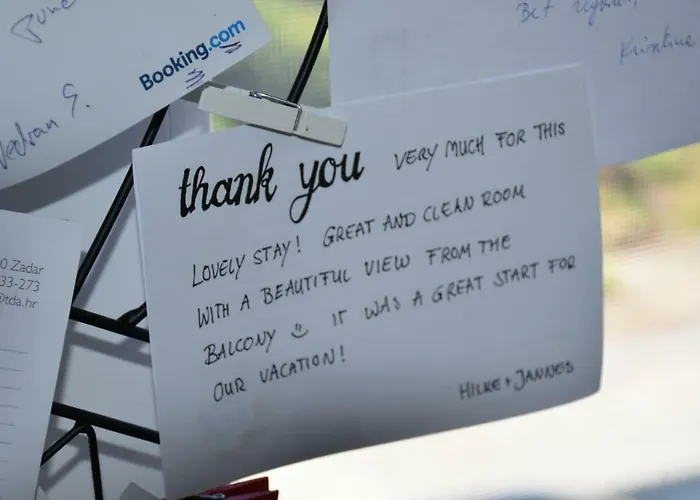 Booking.com
Vedran G.
Kristine
thank you VERY MUCH FOR THIS
LOVELY STAY! GREAT AND CLEAN ROOM
WITH A BEAUTIFUL VIEW FROM THE
BALCONY ☺ IT WAS A GREAT START FOR
OUR VACATION!
HILKE + JANNES
0 Zadar
33-273
@tda.hr